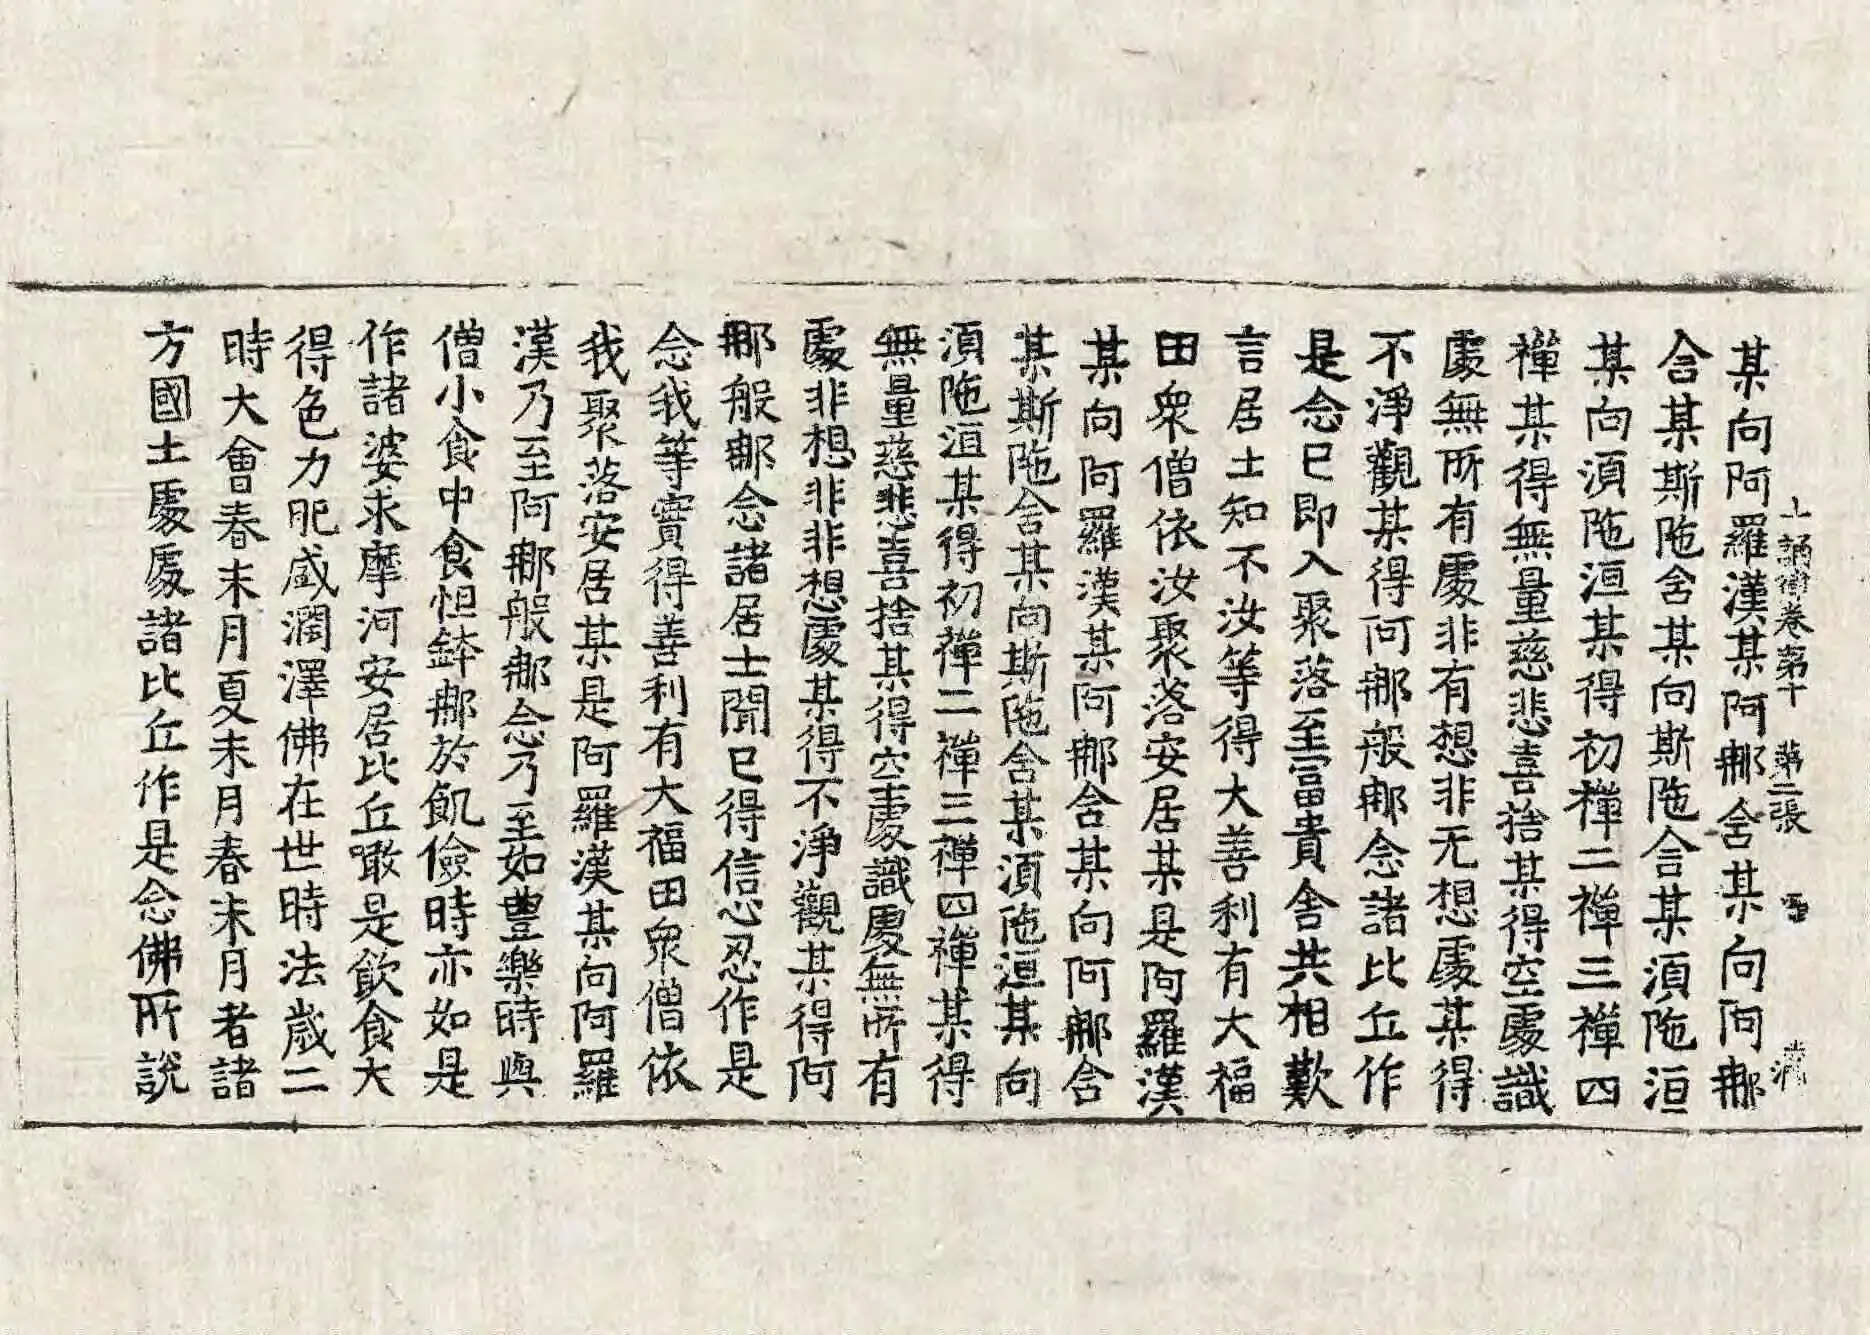 十誦律卷第十 第二張
某向阿羅漢某阿那舍某向阿那
含某斯陁舍某向斯陁含某湏陁洹
某向湏陁洹某得初禪二禪三禪四
禪某得無量慈悲喜捨某得空處識
處無所有處非有想非无想處某得
不淨觀某得阿那般那念諸比丘作
是念已即入聚落至冨貴舍共相歎
言居士知不汝等得大善利有大福
田衆僧依汝聚落安居某是阿羅漢
某向阿羅漢某阿那含某向阿那含
某斯陁含某向斯陁含某湏陁洹某向
湏陁洹某得初禪二禪三禪四禪某得
無量慈悲喜捨某得空處識處無所有
處非想非非想處某得不淨觀某得阿
那般那念諸居士聞已得信心忍作是
念我等實得善利有大福田衆僧依
我聚落安居某是阿羅漢某向阿羅
漢乃至阿那般那念乃至如豊樂時與
僧小食中食怛鉢那於飢儉時亦如是
作諸婆求摩河安居比丘噉是飲食大
得色力肥盛潤澤佛在世時法歲二
時大會春末月夏末月春末月者諸
方國土處處諸比丘作是念佛所說